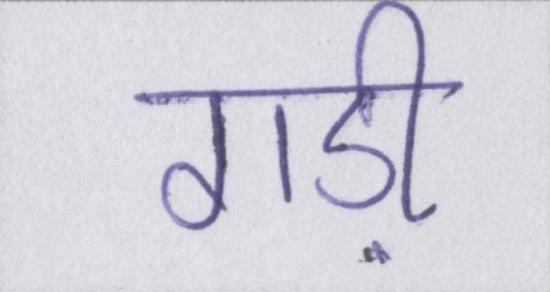 गड़ी